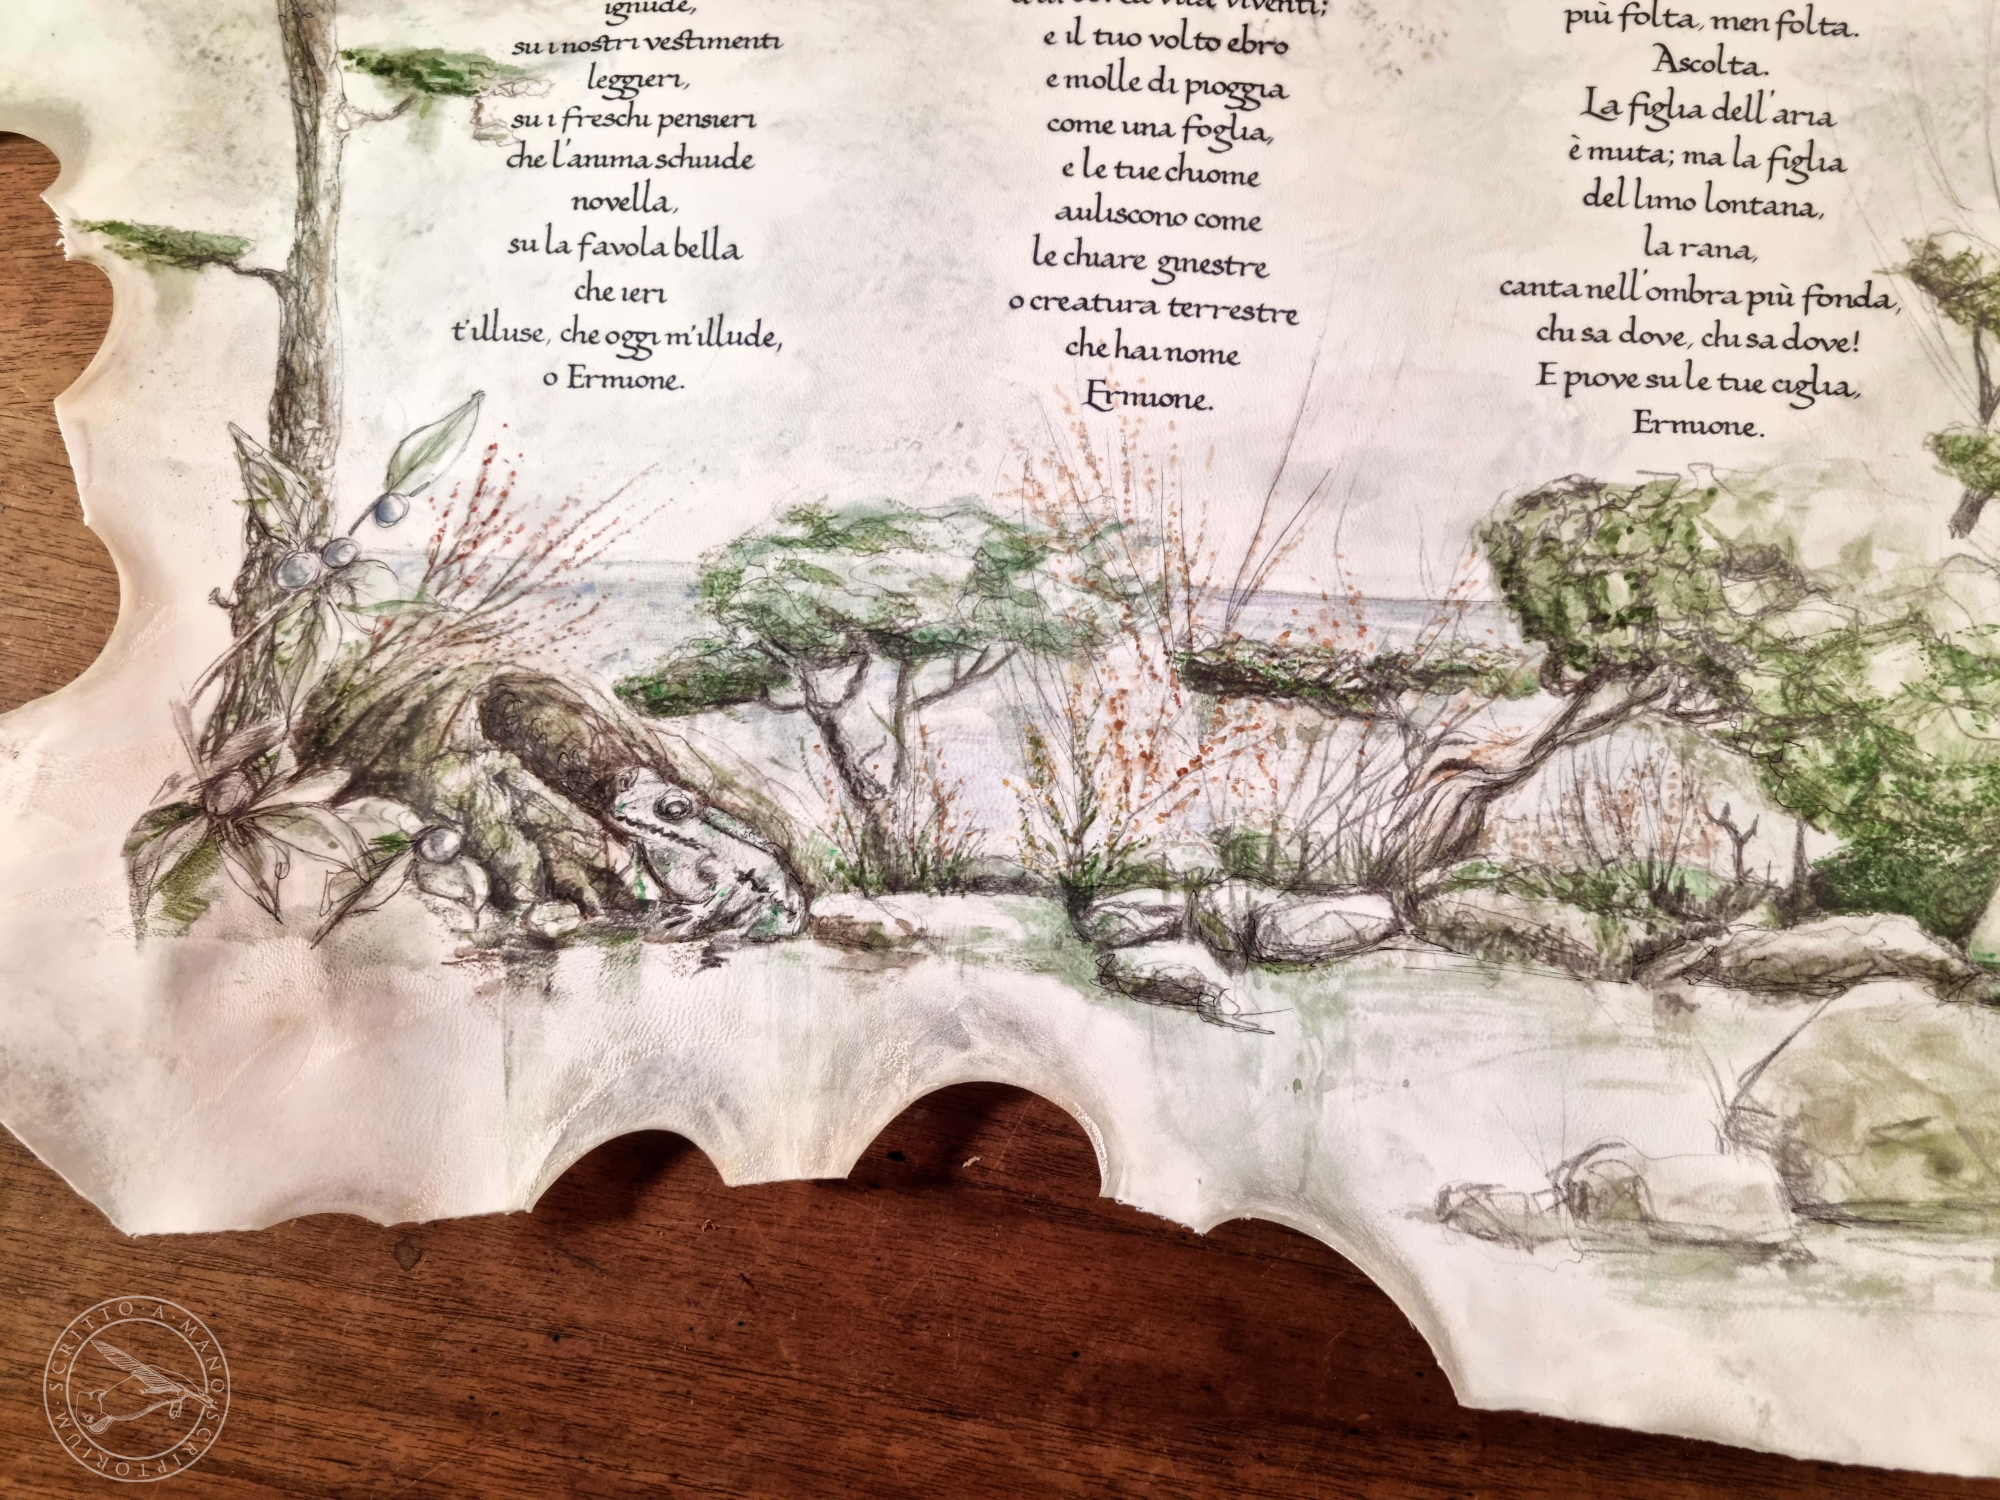 ignude,
su i nostri vestimenti
leggieri,
su i freschi pensieri
che l'anima schiude
novella,
su la favola bella
che ieri
t'illuse, che oggi m'illude,
o Ermione.
vita viventi;
e il tuo volto ebro
e molle di pioggia
come una foglia,
e le tue chiome
auliscono come
le chiare ginestre
o creatura terrestre
che hai nome
Ermione.
più folta, men folta.
Ascolta.
La figlia dell'aria
è muta; ma la figlia
del limo lontana,
la rana,
canta nell'ombra più fonda,
chi sa dove, chi sa dove!
E piove su le tue ciglia,
Ermione.
SCRITTO·A·MANO·SCRIPTORIUM·